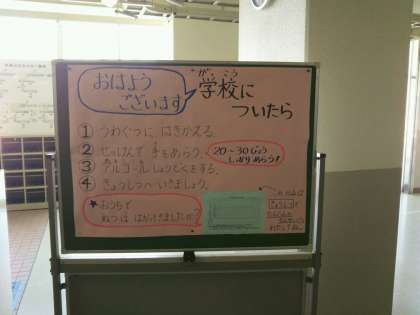 おはよう
ございます
がっこう
学校に
ついたら
① うわぐつに はきかえる。
② せっけんで 手をあらう。
20～30びょう
しっかりあらう!
③ アルコールしょうどくをする。
④ きょうしつへ いきましょう。
★おうちで
ねつは はかってきましたか?